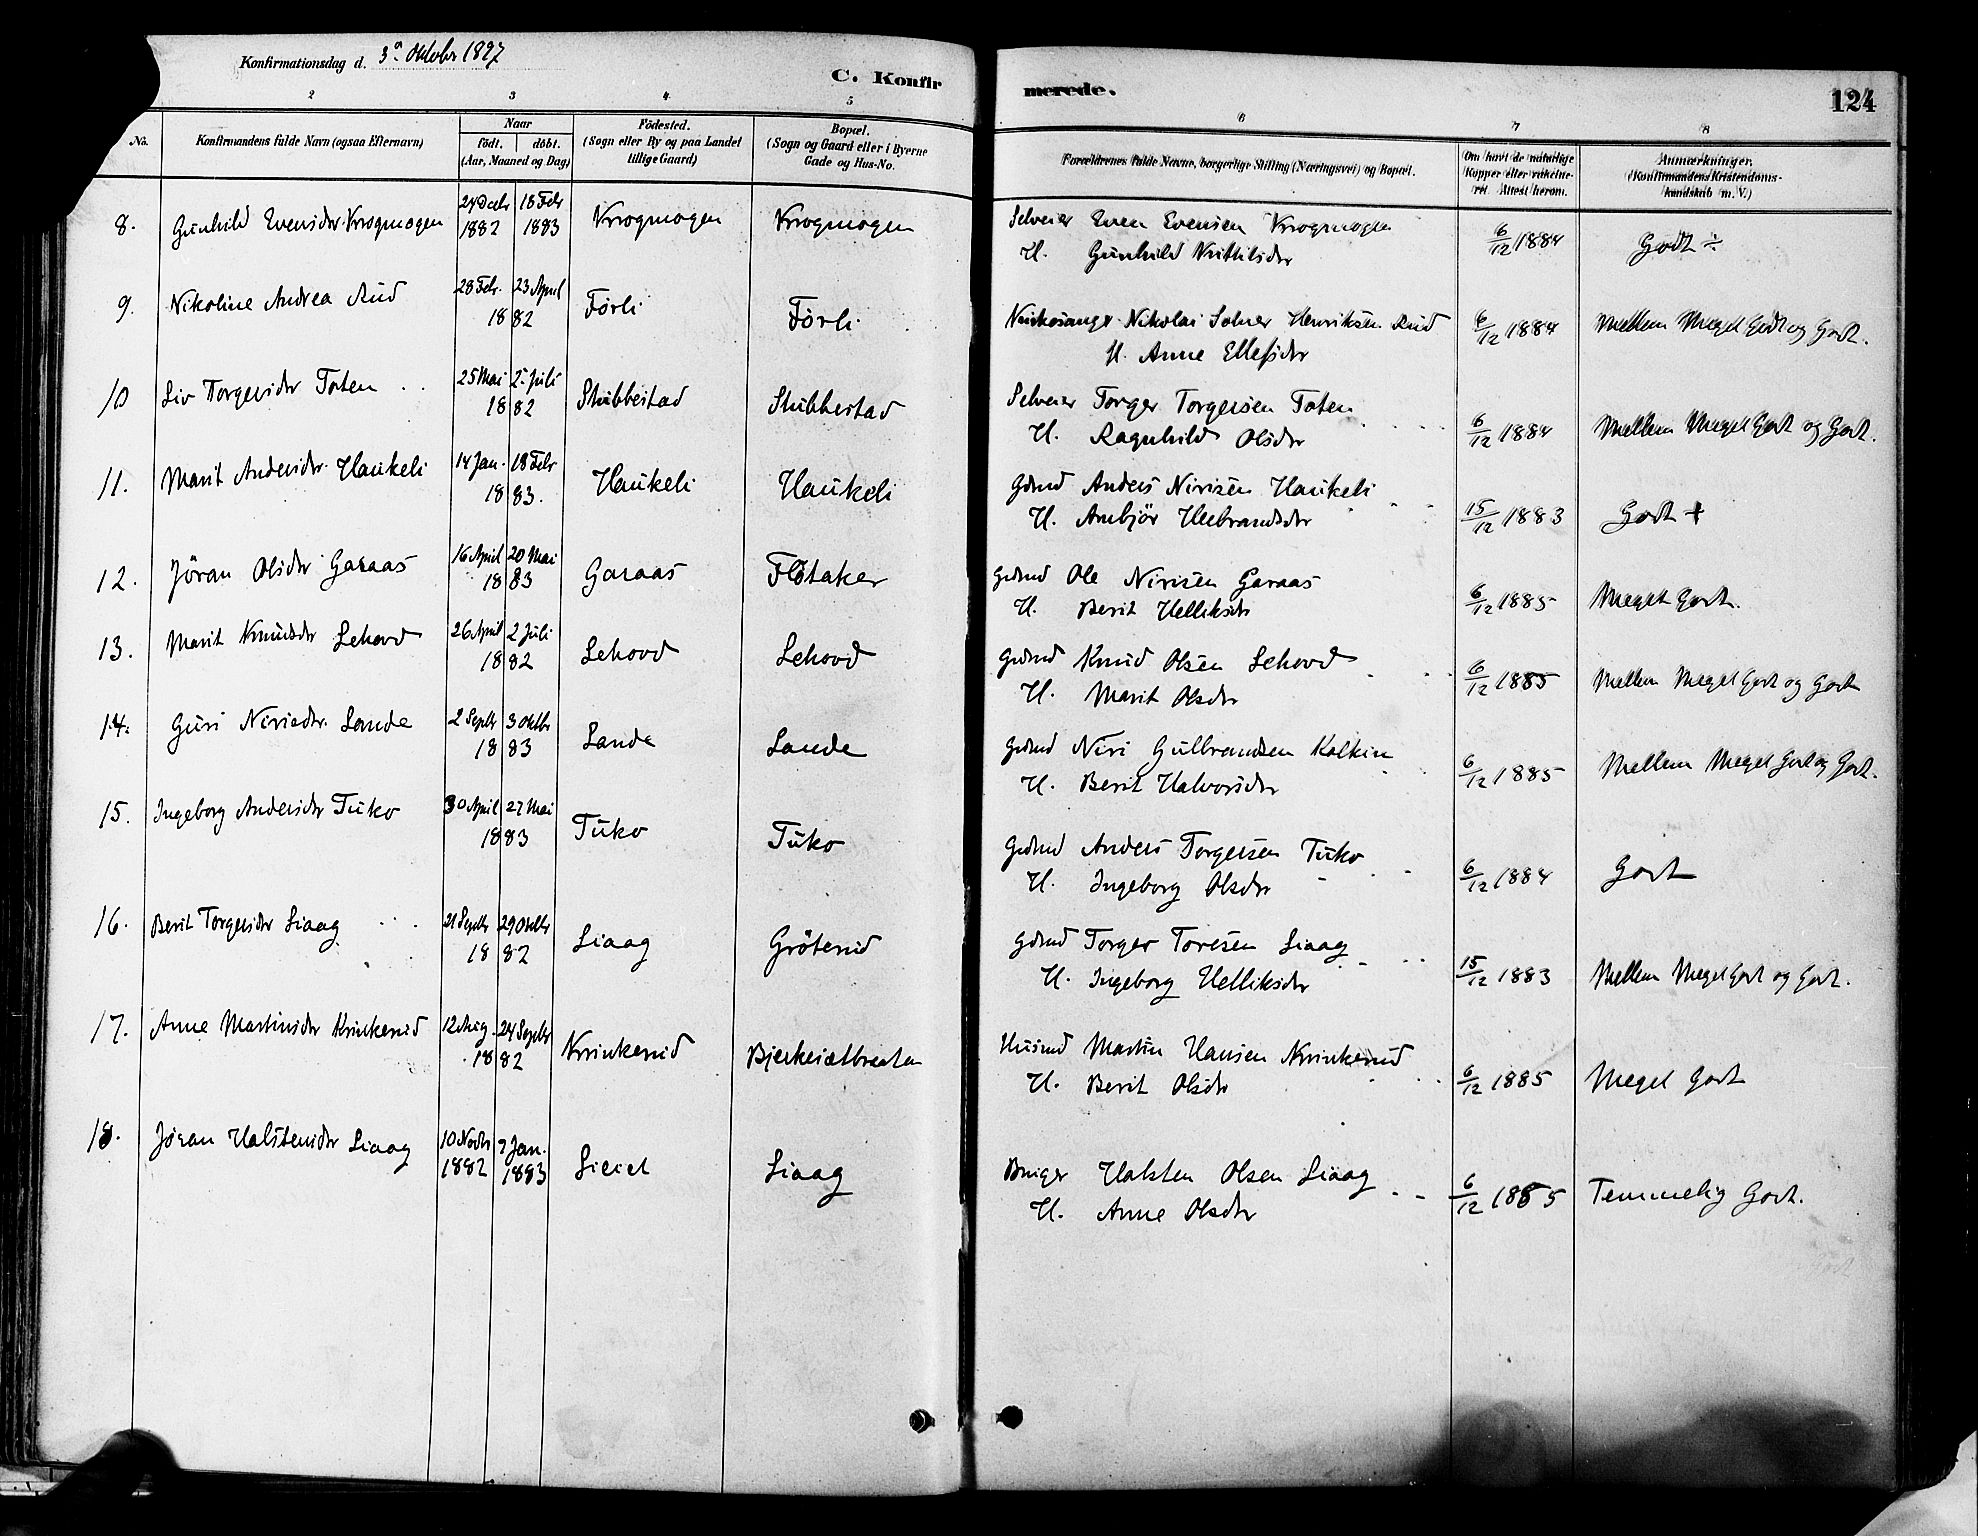 Konfirmationsdag d. 3. Oktobr 1897
C. Konfirmerede.
124
2 3 4 5 6 7 8
No.
Konfirmandens fulde Navn (ogsaa Efternavn)
Naar
födt. döbt.
(Aar, Maaned og Dag)
Födested.
(Sogn eller By og paa Landet
tillige Gaard)
Bopæl.
(Sogn og Gaard eller i Byerne
Gade og Hus-No.
Forældrenes fulde Navne, borgerlige Stilling (Næringsvei) og Bopæl.
Om havt de naturlige
Kopper eller vakcineret.
Attest herom.
Anmærkninger.
(Konfirmandens Kristendomskundskab
m. V.)
8. Gunhild Evensdtr 24 Decbr 1882 18 Febr 1883
Selveier Even Evensen
H. Gunhild 6/12 1884 Godt ÷
9. Nikoline Andrea Rud 28 Febr. 23 April 1882 Førli Førli
Nikolai Henriksen Rud
H. Anne Ellefsdtr 6/12 1884 Mellem Meget Godt og Godt.
10 Liv Torgersdtr Toten 25 Mai 2. Juli 1882 Stubbestad Stubbestad
Selveier Torger Torgersen Toten
H. Ragnhild Olsdtr 6/12 1884 Mellem Meget Godt og Godt.
11. Marit Andersdtr. Haukeli 14 Jan. 18 Febr 1883. Haukeli Haukeli
Gdmd Anders Nirisen Haukeli
H. Hilbrandsdtr 15/12 1883 Godt +
12. Jöran Olsdtr Garaas 16 April 20 Mai 1883 Garaas Flötaker
Gdmd Ole Nirisen Garaas
H. Berit Helliksdtr 6/12 1885 Meget Godt.
13. Marit Knudsdtr Lehovd 26 April 2 Juli 1882 Lehovd Lehovd
Gdmd Knud Olsen Lehovd
H. Marit Olsdtr 6/12 1885 Mellem Meget Godt og Godt
14. Guri Nirisdtr. Lande 2 Septbr 3 Oktbr 1883 Lande Lande
Gdmd Niri Gulbrandsen Kolkin
H. Berit Halvorsdtr 6/12 1885 Mellem Meget Godt og Godt.
15. Ingeborg Andersdtr Tuko 30 April 27 Mai 1883 Tuko Tuko
Gdmd Anders Torgersen Tuko
H. Ingeborg Olsdtr 6/12 1884 Godt
16. Berit Torgersdtr Liaag 21 Septbr 29 Oktbr 1882 Liaag Gröterud
Gdmd Torger Toresen Liaag
H. Ingeborg Helliksdtr 15/12 1883 Mellem Meget Godt og Godt.
17. Anne Martinsdtr Krinkerud 12 Aug. 24 Septbr 1882 Krinkerud
Husmd Martin Hansen Krinkerud
H. Berit Olsdtr 6/12 1885 Meget Godt
18. Jöran Halstensdtr Liaag 10 Novbr 1882 7 Jan. 1883 Liaag
Halsten Olsen Liaag
H. Anne Olsdtr 6/12 1885 Temmelig Godt.